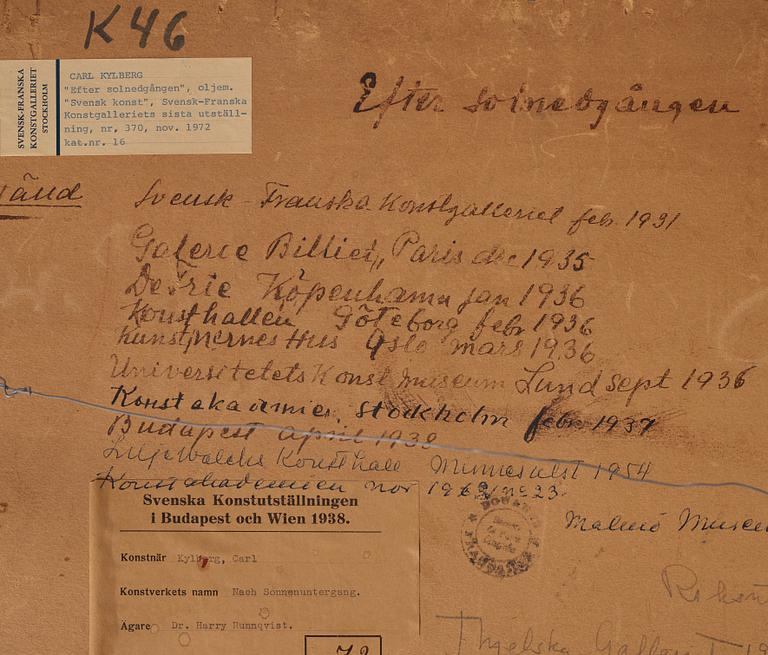 K46
SVENSK-FRANSKA
KONSTGALLERIET
STOCKHOLM
CARL KYLBERG
"Efter solnedgången", oljem.
"Svensk konst", Svensk-Franska
Konstgalleriets sista utställ-
ning, nr, 370, nov. 1972
kat.nr. 16
Efter solnedgången
Svensk-Franska Konstgalleriet febr. 1931
Galerie Billiet, Paris dec 1935
De Frie Köpenhamn jan 1936
Konsthallen Göteborg febr 1936
Kunstnernes Hus Oslo mars 1936
Universitetets Konstmuseum Lund sept 1936
Konstakademien Stockholm febr. 1937
Budapest april 1938
Liljevalchs Konsthall Minnesutst 1954
Konstakademien nov
Svenska Konstutställningen
i Budapest och Wien 1938.
Konstnär Kylberg, Carl
Konstverkets namn Nach Sonnenuntergang.
Ägare Dr. Harry Runnqvist.
Malmö
Thielska